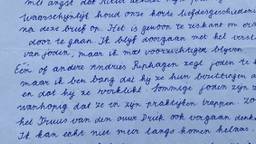 met angst dat
Waarschijnlijk houd onze korte liefdesgeschiedenis
na deze brief op. Het is gewoon te riskant om
door te gaan. Ik blijf doorgaan met het
van joden, maar ik moet voorzichtiger blijven
Eén of andere Andries Riphagen zegt joden te
maar ik ben bang dat hij ze hun bezittingen
en dat hij ze werkelijk Sommige joden zijn
wanhopig dat ze in zijn praktijken trappen.
het Truus van den ouwe Druk ook vergaan
Ik kan echt niet meer langs komen helaas.